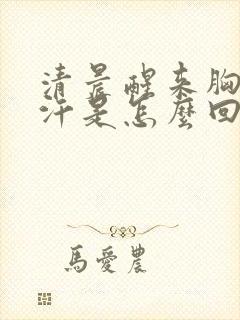 清晨醒来胸
汗是怎麼回
馬愛農